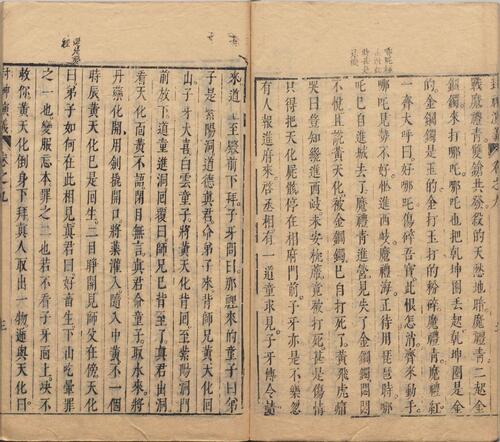 戰魔禮青雙鎗共發殺的天愁地暗魔禮青二起金
鐲來打哪吒哪吒也把乾坤圈丟起乾坤圈是金
的金鋼鐲是玉的金打玉打的粉碎魔禮青魔禮紅
一齊大呼曰好哪吒傷碎吾寶此恨怎消齊來動手
哪吒見勢不好忙進西岐魔禮海正待用琵琶時哪
吒已自進城去了魔禮青進營見失了金鋼鐲悶悶
不悅且說黃天化被金鋼鐲已自打死了黃飛虎痛
哭曰豈知纔進西岐未安枕蓆竟被打死甚是傷情
只得把天化屍骸停在相府門前子牙亦是不樂忽
有人報進府來啓丞相有一道童求見子牙傳令請
來道童至殿前下拜子牙問曰那裡來的童子曰弟
子是紫陽洞道德眞君命弟子來背師兄黃天化回
山子牙大喜白雲童子將黃天化背回至紫陽洞門
前放下道童進洞回覆曰師兄已背至了眞君出洞
看天化面黃不語閉目無言眞君命童子取水來將
丹藥化開用劍撬開口將藥灌入隨入中黃不一個
時辰黃天化已是回生二目睜開見師父在傍天化
曰弟子如何在此相見眞君曰好畜生下山吃葷罪
之一也變服忘本罪之二也若不看子牙面上決不
救你黃天化倒身下拜眞人取出一物遞與天化曰
封神演義 卷之九 三